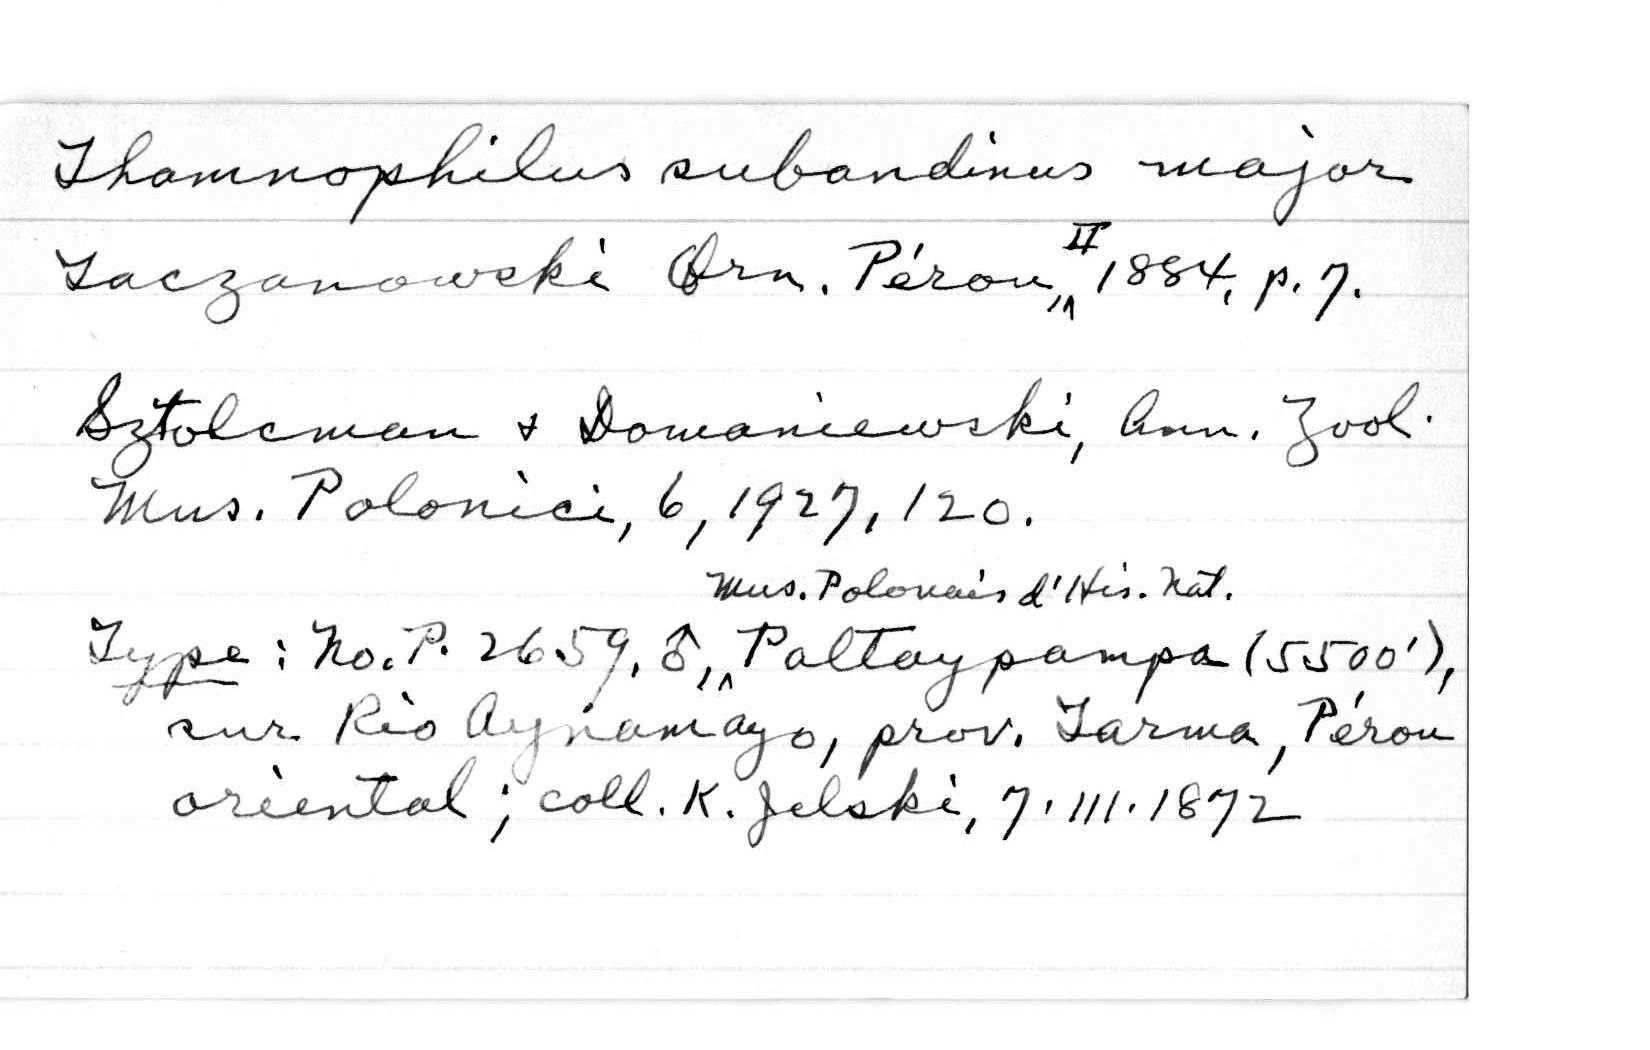 Thamnophilus subandinus major
Taczanowski Orn. Pérou, II 1884, p. 7.
Sztolcman & Domaniewski, Ann. Zool.
Mus. Polonici, 6, 1927, 120.
Mus. Polonais d'His. Nat.
Type : No. P. 2659, ♂, Paltaypampa (5500'),
sur Rio Aynamayo, prov. Tarma, Pérou
oriental ; coll. K. Jelski, 7.III.1872